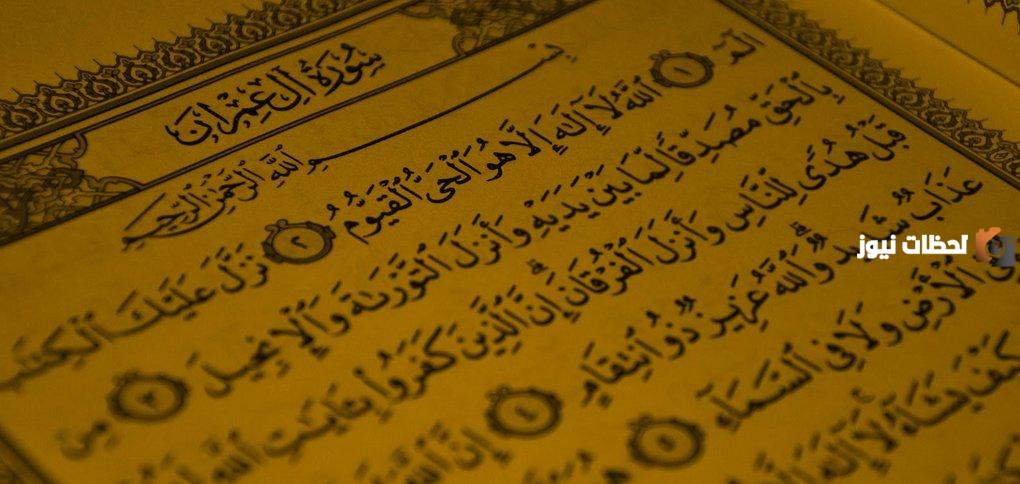 سُورَةُ آلِ عِمْرَانَ
بِسْمِ اللَّهِ الرَّحْمَٰنِ الرَّحِيمِ
الٓمٓ ١ ٱللَّهُ لَآ إِلَٰهَ إِلَّا هُوَ ٱلْحَىُّ ٱلْقَيُّومُ ٢ نَزَّلَ عَلَيْكَ ٱلْكِتَٰبَ
بِٱلْحَقِّ مُصَدِّقًا لِّمَا بَيْنَ يَدَيْهِ وَأَنزَلَ ٱلتَّوْرَىٰةَ وَٱلْإِنجِيلَ ٣ مِن
قَبْلُ هُدًى لِّلنَّاسِ وَأَنزَلَ ٱلْفُرْقَانَ ۗ إِنَّ ٱلَّذِينَ كَفَرُوا۟ بِـَٔايَٰتِ ٱللَّهِ
عَذَابٌ شَدِيدٌ ۗ وَٱللَّهُ عَزِيزٌ ذُو ٱنتِقَامٍ ٤ إِنَّ ٱللَّهَ
ٱلْأَرْضِ وَلَا فِى ٱلسَّمَآءِ ٥ هُوَ
كَيْفَ يَشَآءُ ۚ لَآ إِلَٰهَ إِلَّا
لحظات نيوز